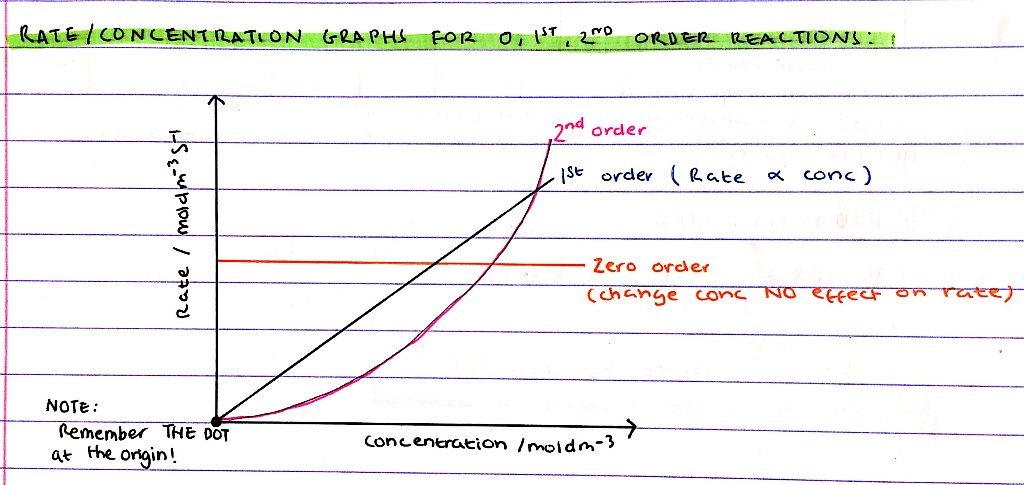 RATE/CONCENTRATION GRAPHS FOR 0, 1ST, 2ND ORDER REACTIONS:
2nd order
1st order (Rate ∝ conc)
Rate / moldm-3 s-1
Zero order
(change conc NO effect on rate)
NOTE:
Remember THE DOT
at the origin!
Concentration /moldm-3